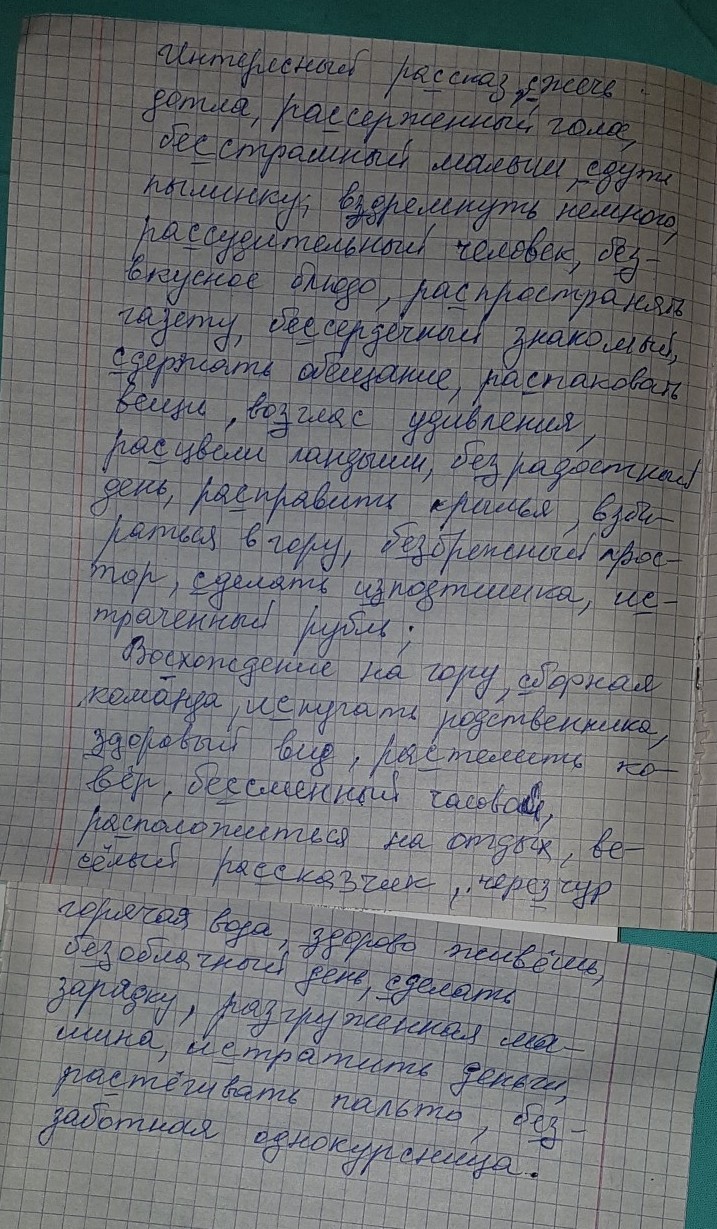 Интересный рассказ, сжечь
дотла, рассерженный голос,
бесстрашный малыш, сдуть
пылинку, вздремнуть немного,
рассудительный человек, без-
вкусное блюдо, распространять
газету, бессердечный знакомый,
сдержать обещание, распаковать
вещи, возглас удивления,
расцвели ландыши, безрадостный
день, расправить крылья, взби-
раться в гору, безбрежный прос-
тор, сделать изподтишка, ис-
траченный рубль;
Восхождение на гору, сборная
команда, испугать родственника,
здоровый вид, растелить ко-
вёр, бессменный часовой,
расположиться на отдых, ве-
сёлый рассказчик, черезчур
горячая вода, здорово живёшь,
безоблачный день, сделать
зарядку, разгруженная ма-
шина, истратить деньги,
растёгивать пальто, без-
заботная однокурсница.